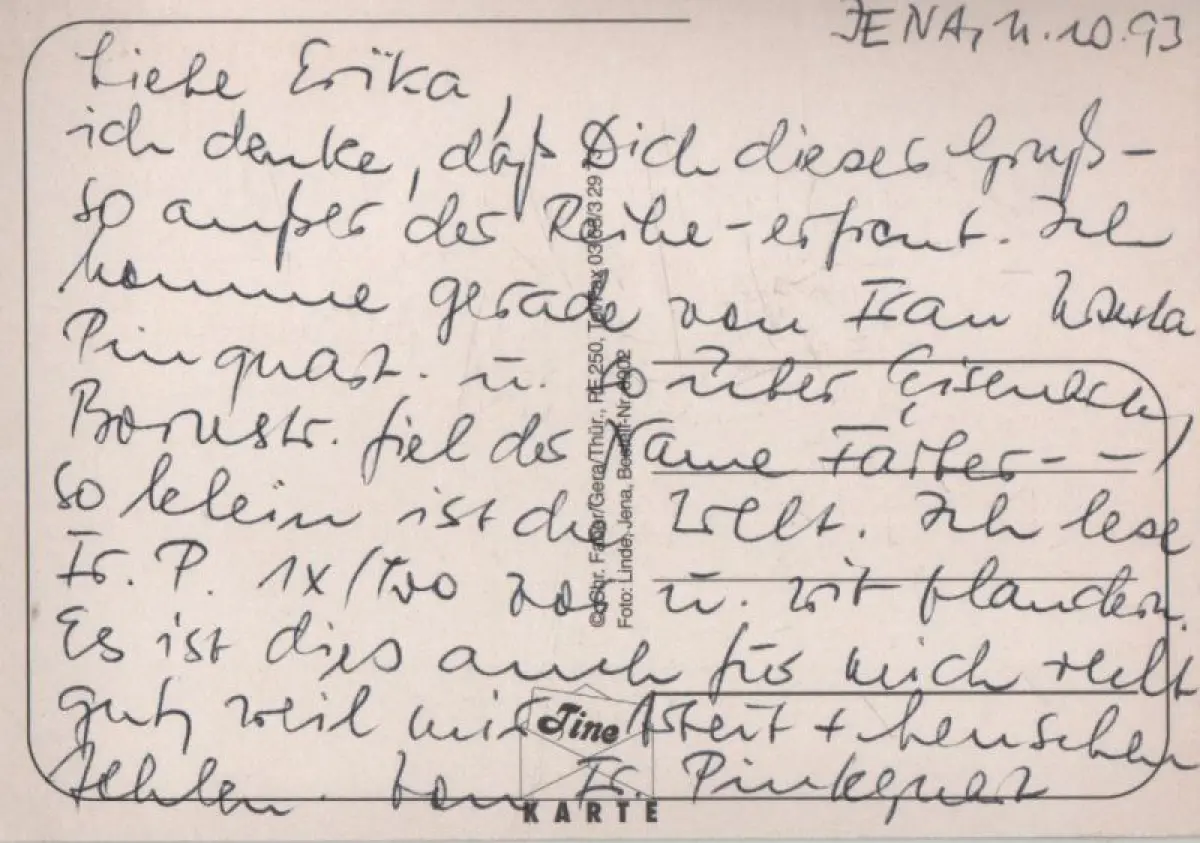 JENA, 11.10.93
Liebe Erika,
ich denke, daß Dich dieser Gruß -
so außer der Reihe - erfreut. Ich
komme gerade von Frau
Pinquart. u. so über Eisenach,
Bornstr. fiel der Name Färber - -
so klein ist die Welt. Ich lese
Fr. P. 1x/Wo vor u. wir plaudern.
Es ist dies auch für mich recht
gut, weil mir Arbeit + Menschen
fehlen. Von Fr. Pinkquart
Foto: Linde, Jena, Bestell-Nr.
Tine
KARTE